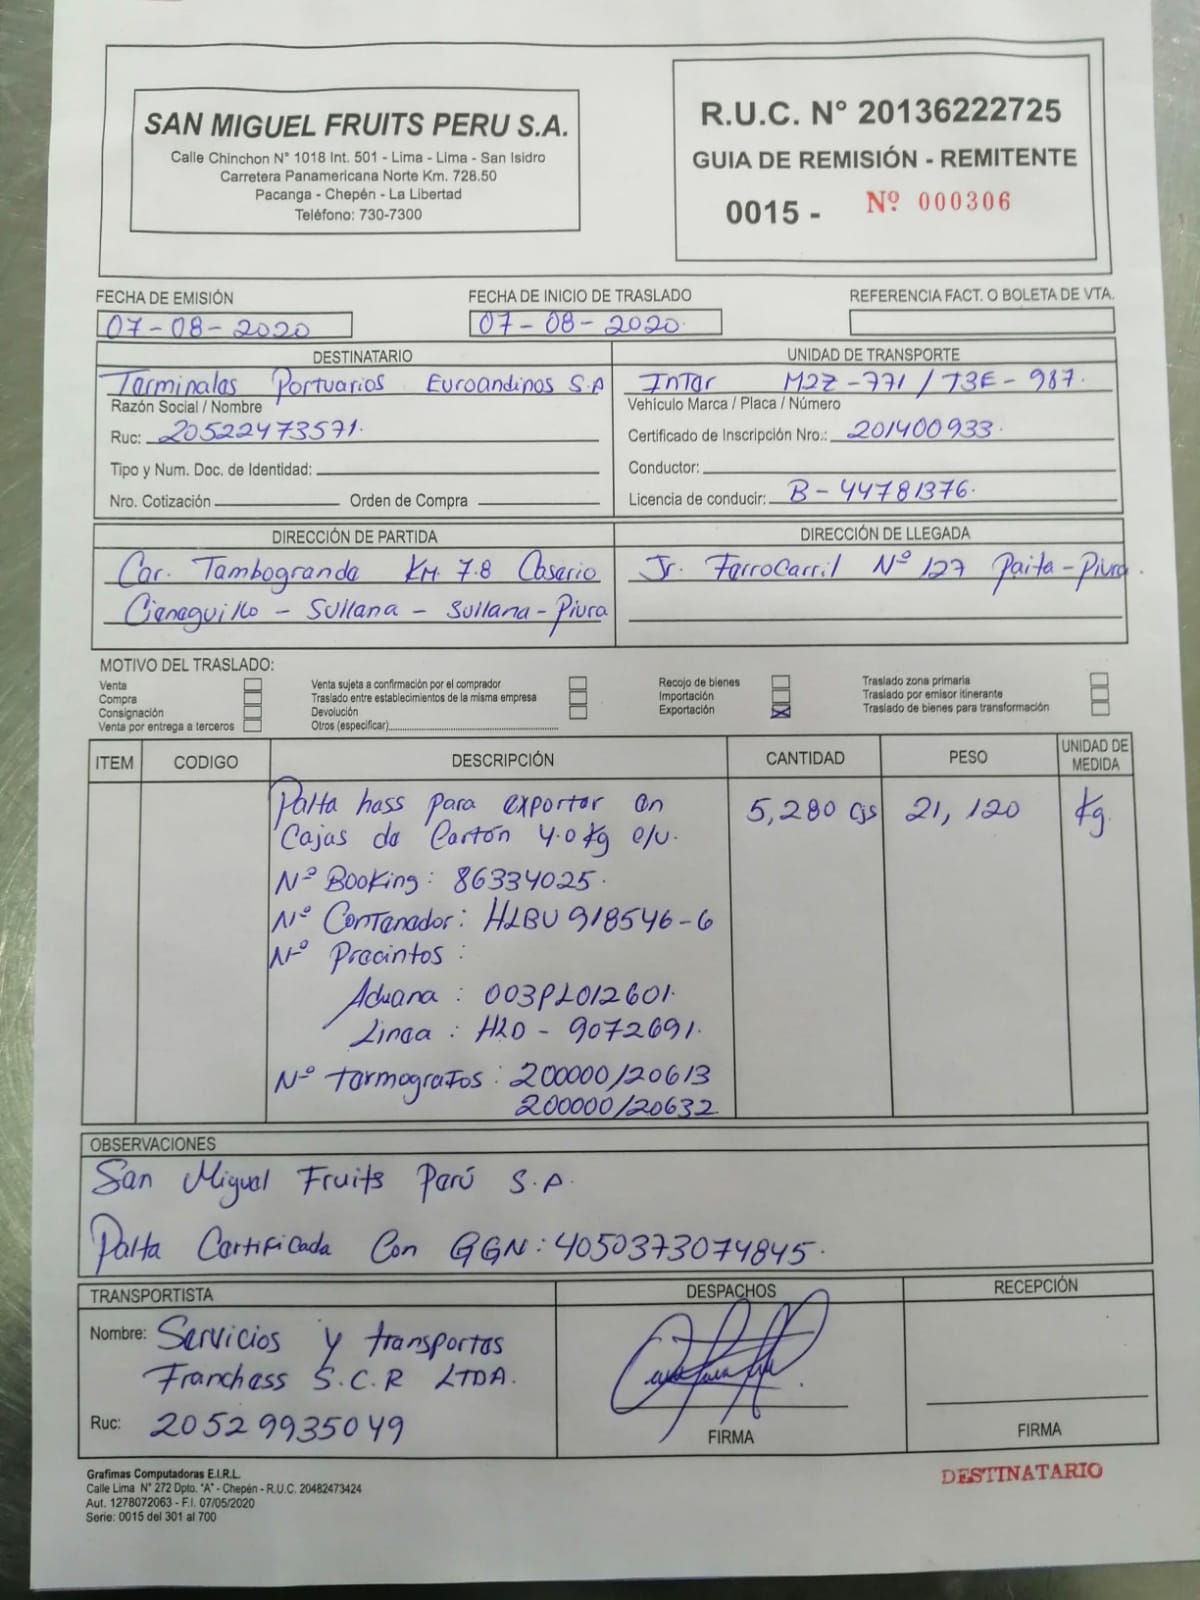 SAN MIGUEL FRUITS PERU S.A.
Calle Chinchon N° 1018 Int. 501 - Lima - Lima - San Isidro
Carretera Panamericana Norte Km. 728.50
Pacanga - Chepén - La Libertad
Teléfono: 730-7300
R.U.C. N° 20136222725
GUIA DE REMISIÓN - REMITENTE
0015 - Nº 000306
FECHA DE EMISIÓN
07-08-2020
FECHA DE INICIO DE TRASLADO
07-08-2020.
REFERENCIA FACT. O BOLETA DE VTA.
DESTINATARIO
Terminales Portuarios Euroandinos S.A
Razón Social / Nombre
Ruc: 20522473571.
Tipo y Num. Doc. de Identidad:
Nro. Cotización Orden de Compra
UNIDAD DE TRANSPORTE
Inter M2Z-771 / T3E-987.
Vehículo Marca / Placa / Número
Certificado de Inscripción Nro.: 201400933.
Conductor:
Licencia de conducir: B-44781376.
DIRECCIÓN DE PARTIDA
Car. Tambogrande KM 7.8 Caserio
Cieneguillo - Sullana - Sullana - Piura
DIRECCIÓN DE LLEGADA
Jr. Ferrocarril Nº 127 Paita - Piura.
MOTIVO DEL TRASLADO:
Venta
Compra
Consignación
Venta por entrega a terceros
Venta sujeta a confirmación por el comprador
Traslado entre establecimientos de la misma empresa
Devolución
Otros (especificar)
Recojo de bienes
Importación
Exportación X
Traslado zona primaria
Traslado por emisor itinerante
Traslado de bienes para transformación
ITEM CODIGO DESCRIPCIÓN CANTIDAD PESO UNIDAD DE MEDIDA
Palta hass para exportar en 5,280 Cjs 21,120 Kg.
Cajas de Cartón 4.0 Kg c/u.
Nº Booking: 86334025.
Nº Contenedor: HLBU 918546-6
Nº Precintos:
Aduana: 003PL012601.
Linea: HLD - 9072691.
Nº termografos: 200000/20613
200000/20632
OBSERVACIONES
San Miguel Fruits Perú S.A.
Palta Certificada Con GGN: 4050373074845.
TRANSPORTISTA
Nombre: Servicios y transportes
Franchess S.C.R LTDA.
Ruc: 20529935049
DESPACHOS
FIRMA
RECEPCIÓN
FIRMA
Grafimas Computadoras E.I.R.L.
Calle Lima N° 272 Dpto. "A" - Chepén - R.U.C. 20482473424
Aut. 1278072063 - F.I. 07/05/2020
Serie: 0015 del 301 al 700
DESTINATARIO